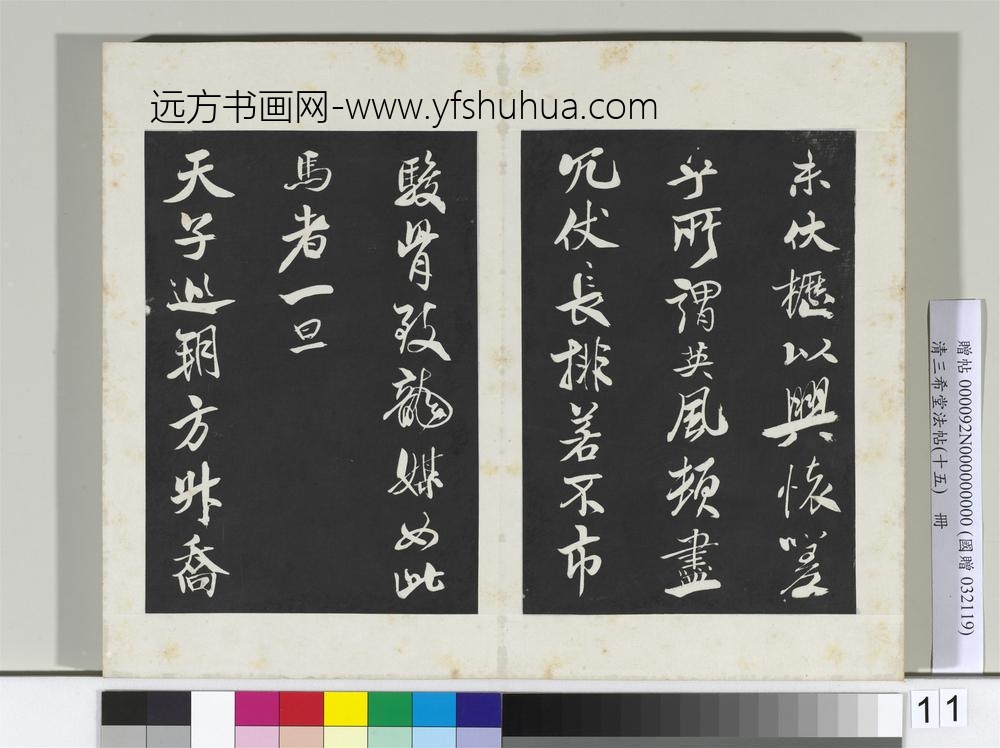 远方书画网-www.yfshuhua.com
未伏櫪以興懷嗟
乎所謂英風頓盡
冗仗長排若不市
駿骨致龍媒如此
馬者一旦
天子巡朔方升喬
贈帖 0000092N000000000 (國贈 032119)
清三希堂法帖(十五) 冊
11